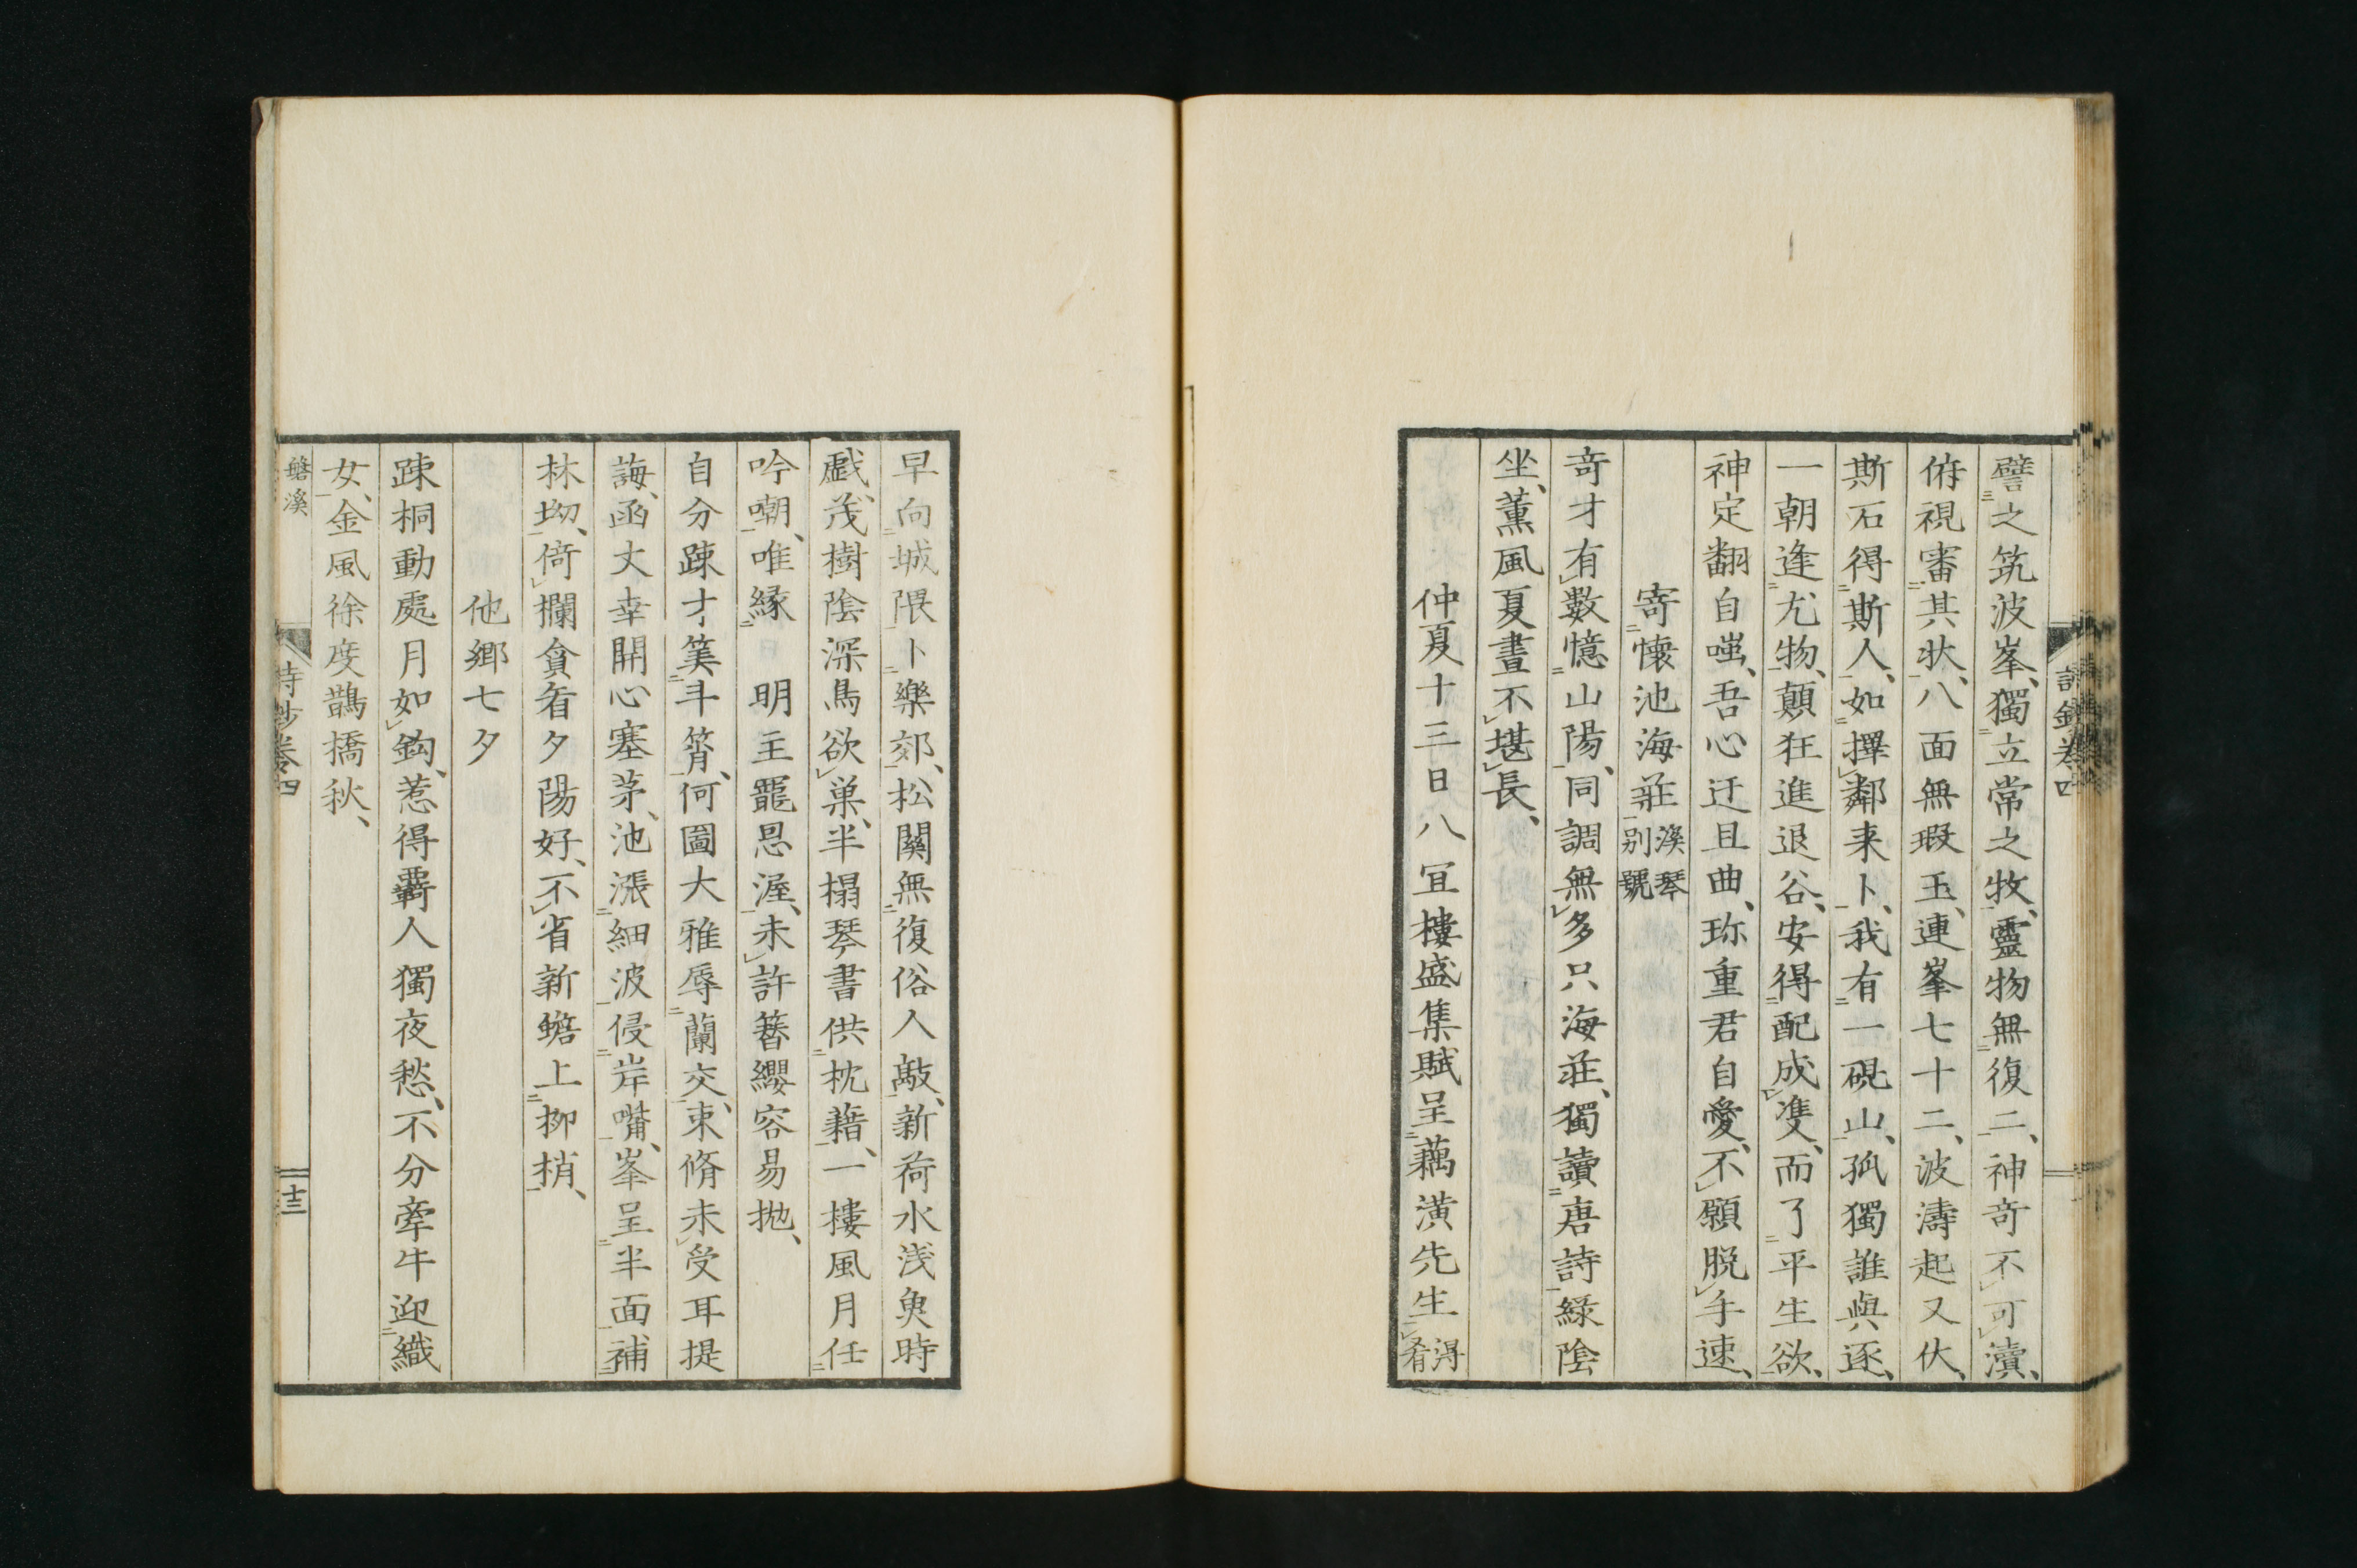 譬之筑波峯、獨立常之牧、靈物無復二、神奇不可瀆、
俯視審其状、八面無瑕玉、連峯七十二、波濤起又伏、
斯石得斯人、如擇鄰来卜、我有一硯山、孤獨誰與逐、
一朝逢尤物、顛狂進退谷、安得配成隻、而了平生欲、
神定翻自嗤、吾心迂且曲、珎重君自愛、不願脱手速、
寄懷池海荘溪琴别號
奇才有數憶山陽、同調無多只海荘、獨讀唐詩緑陰
坐、薫風夏晝不堪長、
仲夏十三日八冝樓盛集賦呈藕潢先生得肴
早向城隈卜樂郊、松關無復俗人敲、新荷水浅魚時
戯、茂樹陰深鳥欲巣、半榻琴書供枕藉、一樓風月任
吟嘲、唯縁明主罷恩渥、未許簪纓容易拋、
自分踈才筭斗筲、何圖大雅辱蘭交、束脩未受耳提
誨、函丈幸開心塞茅、池漲細波侵岸嘴、峯呈半面補
林坳、倚欄貪看夕陽好、不省新蟾上柳梢、
他鄉七夕
踈桐動處月如鈎、惹得羇人獨夜愁、不分牽牛迎織
女、金風徐度鵲橋秋、
磐溪
詩鈔卷四
十三